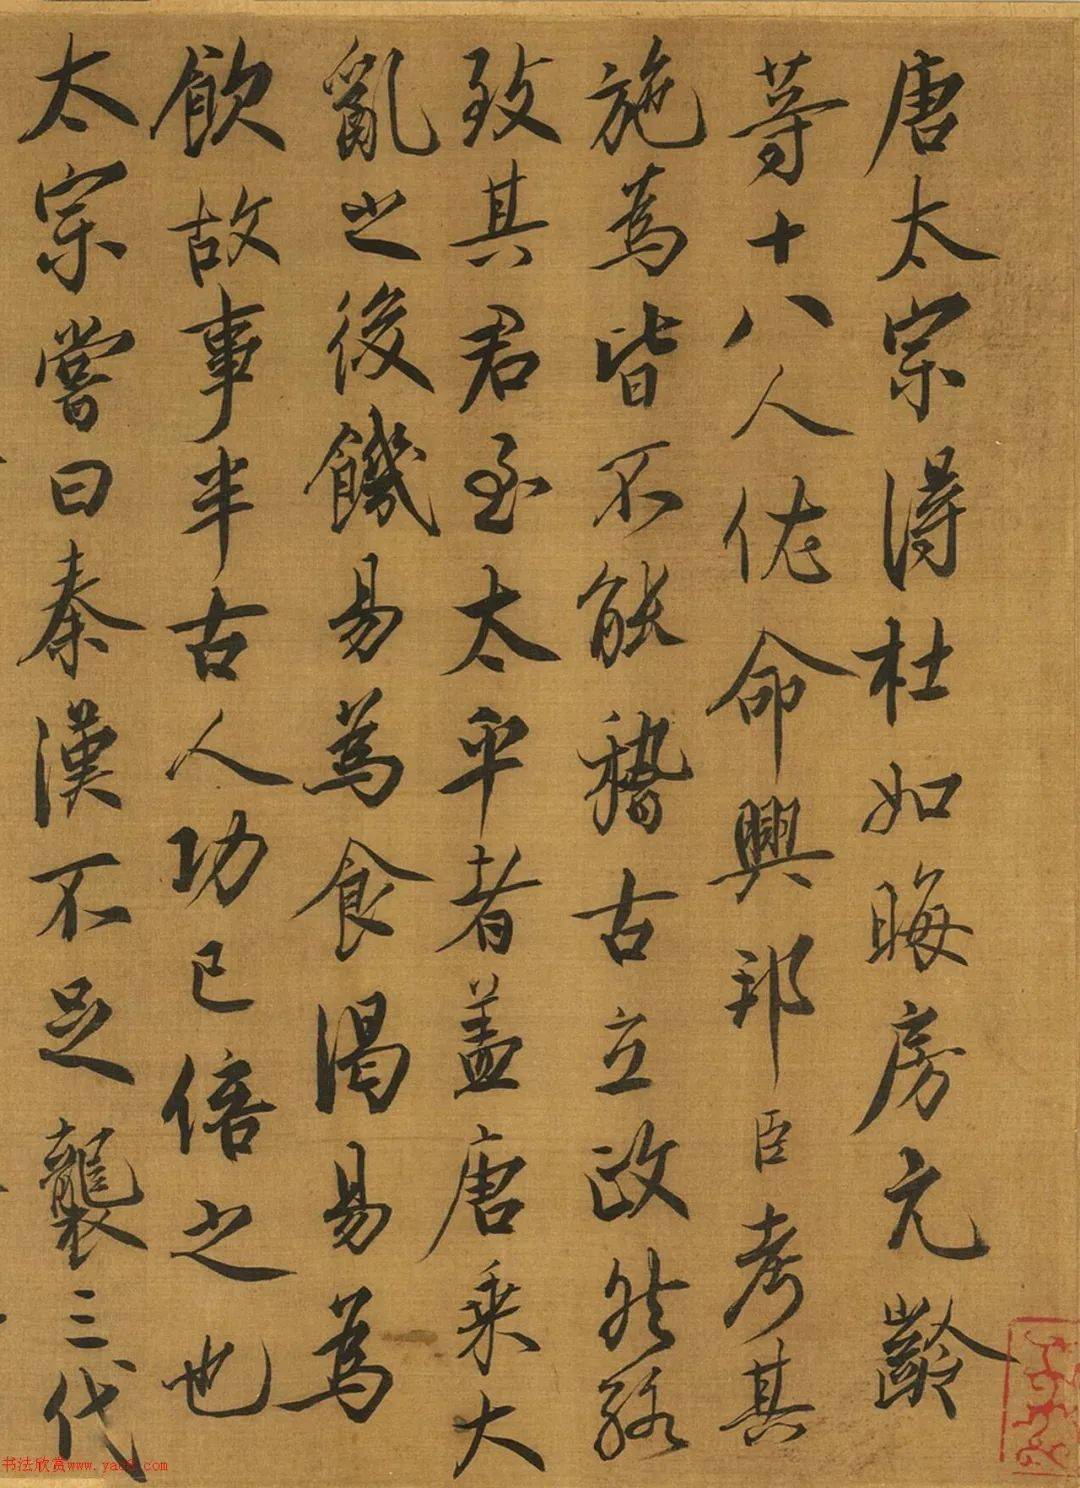 唐太宗得杜如晦房元齡
等十八人佐命興邦臣考其
施為皆不能稽古立政然能
致其君至太平者蓋唐乘大
亂之後饑易為食渴易為
飲故事半古人功已倍之也
太宗嘗曰秦漢不足襲三代
书法欣赏www.yac8.com